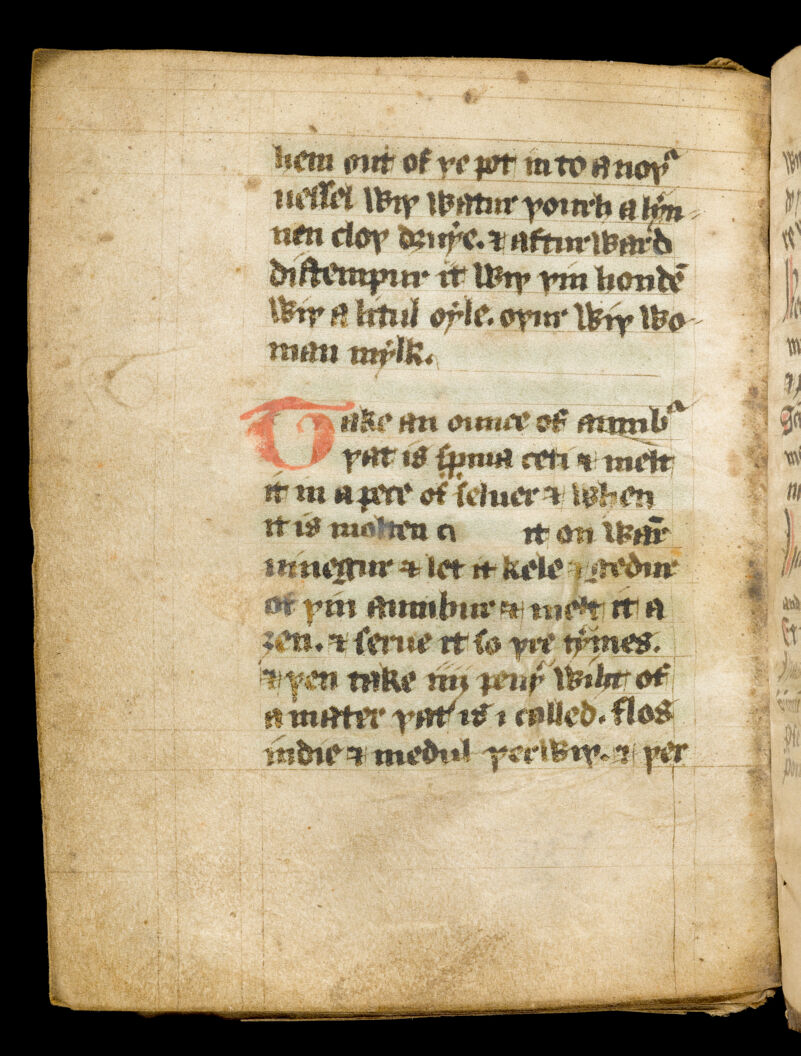 hem out of þe pot in to anoþᵃ
uessel wiþ watur þourh a lyn⸗
nen cloþ druye. & afturward
distempur it wiþ þin hondē
wiþ a litul oyle. oþur wiþ wo⸗
man mylk.
Take an ounce of aumbᵃ
þat is spma ceti & melt
it in a pece of seluer & when
it is molten it on war̄
uinegur & let it kele & gedur
of þin aumbur & melt it a
ȝen. & serue it so þre tymes.
& þen take iiij peny wiht of
a mater þat is i called. flos
indie & medul þerwiþ. & þer